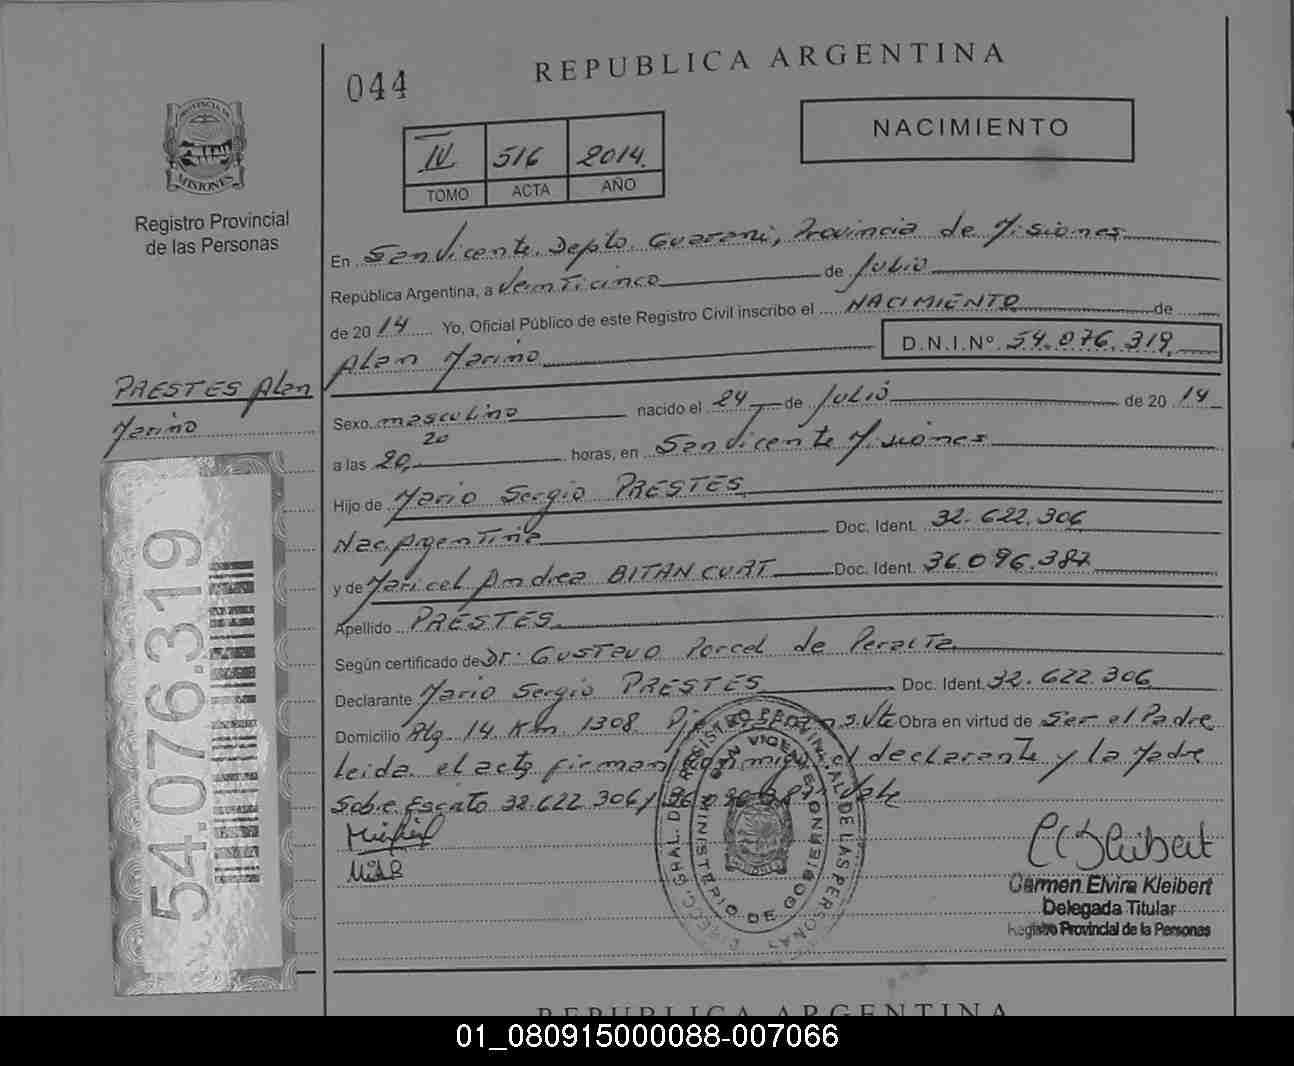 044
REPUBLICA ARGENTINA
NACIMIENTO
IV 516 2014
TOMO ACTA AÑO
PROVINCIA DE
MISIONES
Registro Provincial
de las Personas
En San Vicente, Depto. Guarani, Provincia de Misiones
República Argentina, a Veinticinco de Julio
de 2014 Yo, Oficial Público de este Registro Civil inscribo el NACIMIENTO de
Alan Marino D.N.I.Nº 54.076.319
PRESTES Alan
Marino
Sexo masculino nacido el 24 de Julio de 2014
a las 20,20 horas, en San Vicente Misiones
Hijo de Mario Sergio PRESTES
Nac. Argentina Doc. Ident. 32.622.306
y de Maricel Andrea BITANCURT Doc. Ident. 36.096.387
Apellido PRESTES
Según certificado de Dr. Gustavo Porcel de Peralta
Declarante Mario Sergio PRESTES Doc. Ident. 32.622.306
Domicilio Rta. 14 Km 1308 S.Vte Obra en virtud de Ser el Padre
leida el acta firman conmigo el declarante y la Madre
Sobre Escrito 32.622.306 y 36.096.387 Vale
54.076.319
DIRECC. GRAL. DE REGISTRO PROVINCIAL DE LAS PERSONAS
MINISTERIO DE GOBIERNO
SAN VICENTE
Carmen Elvira Kleibert
Delegada Titular
Registro Provincial de la Personas
REPUBLICA ARGENTINA
01_080915000088-007066